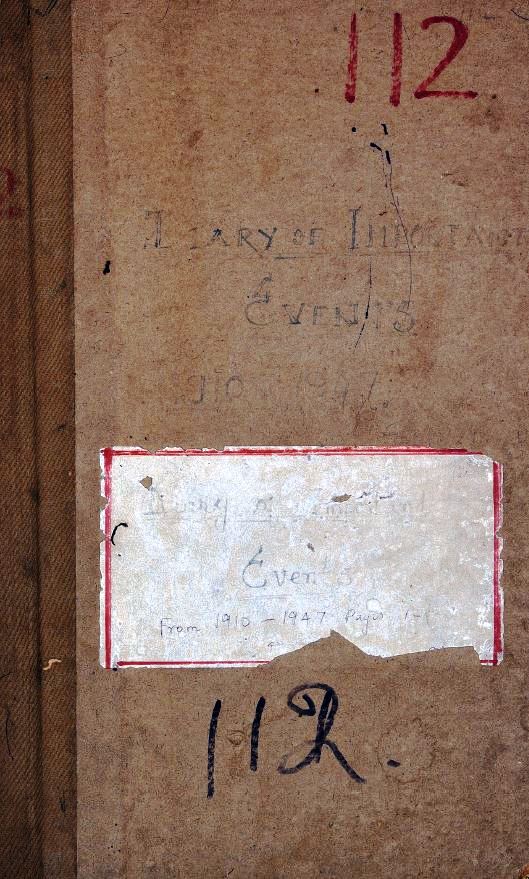 112
DIARY OF IMPORTANT
EVENTS
Diary of Important
Events
From 1910 - 1947 Pages
112.